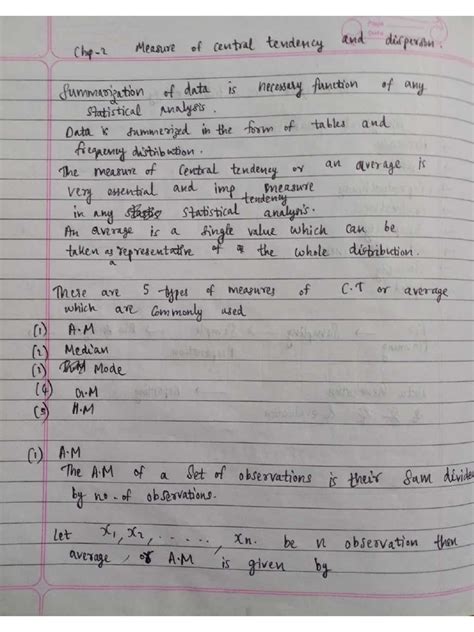 Chp-2 Measure of central tendency and dispersion.
Summarization of data is necessary function of any
statistical analysis.
Data is summerized in the form of tables and
frequency distribution.
The measure of Central tendency or an average is
very essential and imp measure
tendency
in any statistical analysis.
An average is a single value which can be
taken as representative of the whole distribution.
a
There are 5 types of measures of C.T or average
which are commonly used
(1) A.M
(2) Median
(3) Mode
(4) G.M
(5) H.M
(1) A.M
The A.M of a set of observations is their sum divided
by no. of observations.
Let x1, x2, ......, xn. be n observation then
average, or A.M is given by